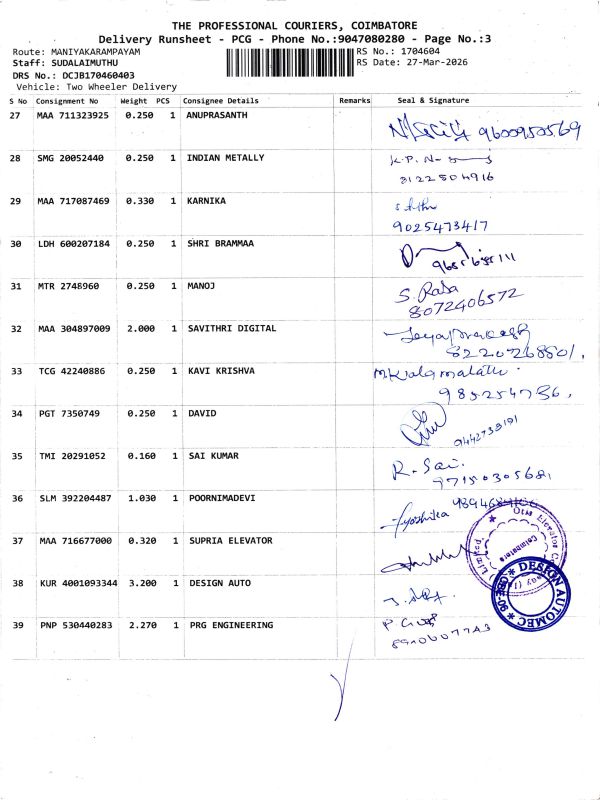 THE PROFESSIONAL COURIERS, COIMBATORE
Delivery Runsheet - PCG - Phone No.:9047080280 - Page No.:3
Route: MANIYAKARAMPAYAM
RS No.: 1704604
Staff: SUDALAIMUTHU
RS Date: 27-Mar-2026
DRS No.: DCJB170460403
Vehicle: Two Wheeler Delivery
S No Consignment No Weight PCS Consignee Details Remarks Seal & Signature
27 MAA 711323925 0.250 1 ANUPRASANTH
9600950569
28 SMG 20052440 0.250 1 INDIAN METALLY
K.P.N
8122504916
29 MAA 717087469 0.330 1 KARNIKA
9025473417
30 LDH 600207184 0.250 1 SHRI BRAMMAA
31 MTR 2748960 0.250 1 MANOJ
S. Rasa
8072406572
32 MAA 304897009 2.000 1 SAVITHRI DIGITAL
Jeyaprakash
8220268801,
33 TCG 42240886 0.250 1 KAVI KRISHVA
985254786,
34 PGT 7350749 0.250 1 DAVID
9442739191
35 TMI 20291052 0.160 1 SAI KUMAR
R. Sai.
77150305681
36 SLM 392204487 1.030 1 POORNIMADEVI
Jyoshika
37 MAA 716677000 0.320 1 SUPRIA ELEVATOR
Otis Elevator
Limited
Coimbatore
38 KUR 4001093344 3.200 1 DESIGN AUTO
DESIGN AUTOMEC
39 PNP 530440283 2.270 1 PRG ENGINEERING